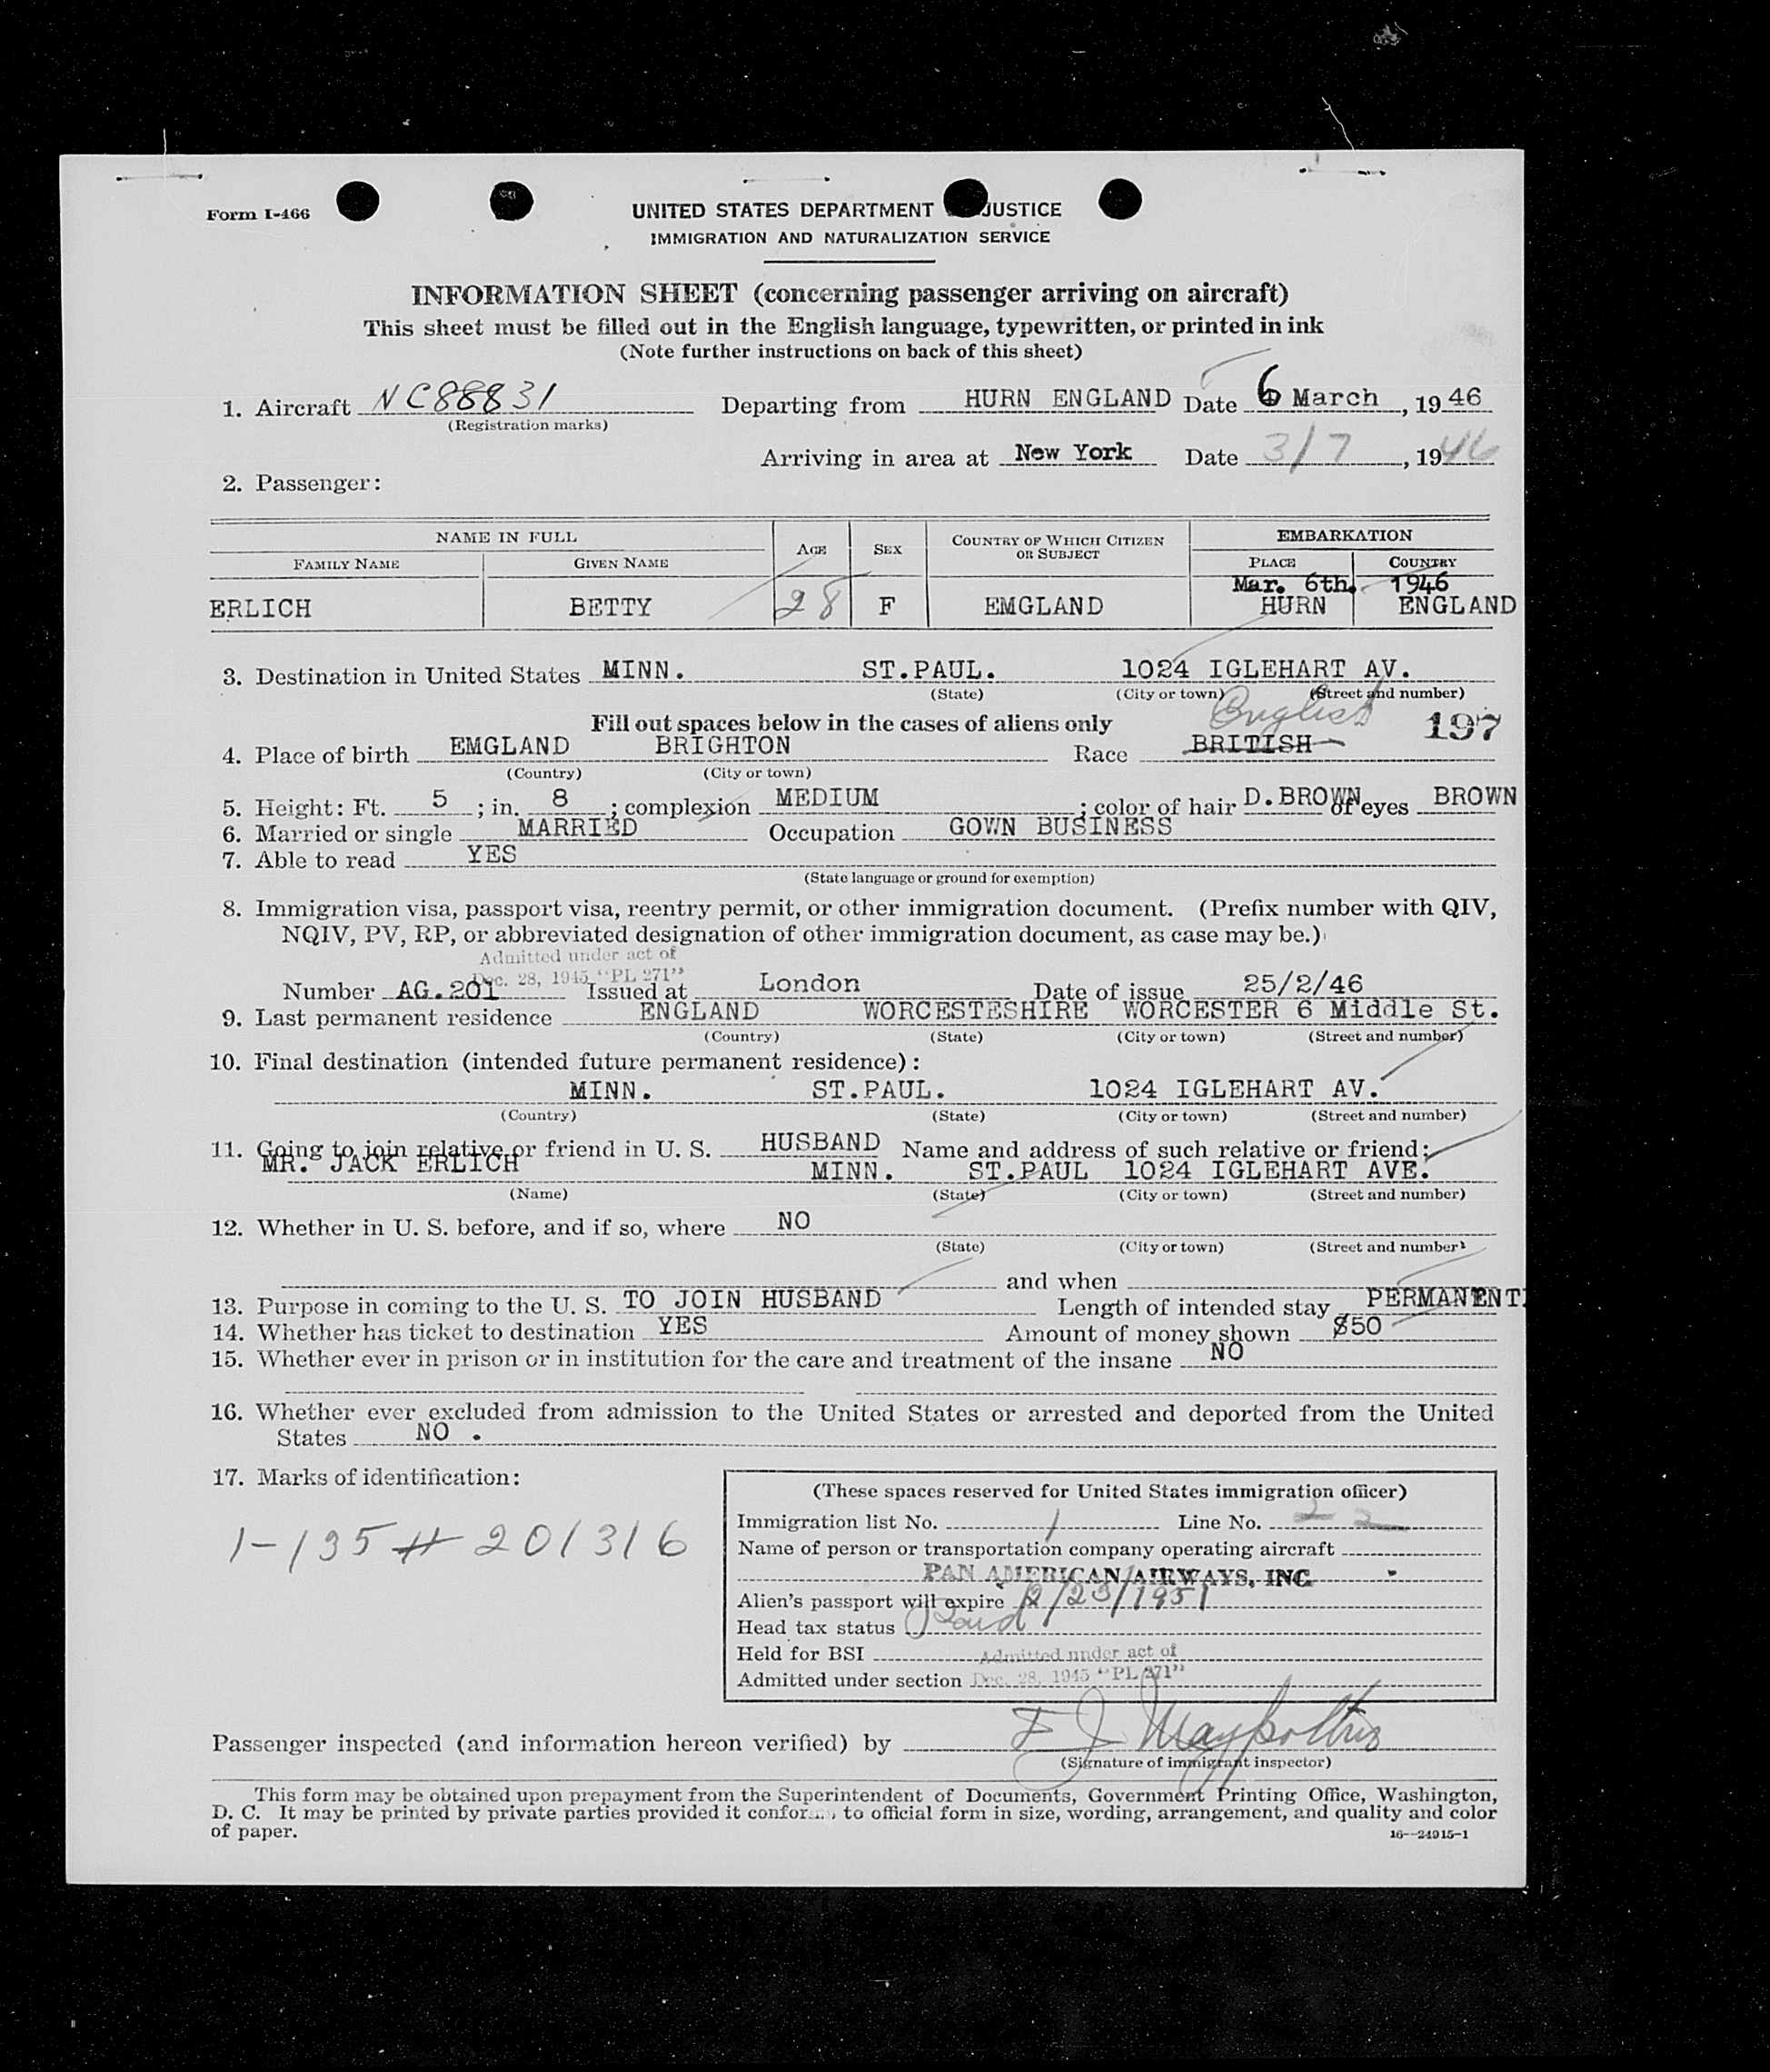 Form I-466
UNITED STATES DEPARTMENT JUSTICE
IMMIGRATION AND NATURALIZATION SERVICE
INFORMATION SHEET (concerning passenger arriving on aircraft)
This sheet must be filled out in the English language, typewritten, or printed in ink
(Note further instructions on back of this sheet)
1. Aircraft NC88831 Departing from HURN ENGLAND Date 6 March, 1946
(Registration marks)
Arriving in area at New York Date 3/7, 1946
2. Passenger:
NAME IN FULL AGE SEX COUNTRY OF WHICH CITIZEN OR SUBJECT EMBARKATION
FAMILY NAME GIVEN NAME PLACE COUNTRY
Mar. 6th. 1946
ERLICH BETTY 28 F EMGLAND HURN ENGLAND
3. Destination in United States MINN. ST.PAUL. 1024 IGLEHART AV.
(State) (City or town) (Street and number)
English
Fill out spaces below in the cases of aliens only 197
4. Place of birth EMGLAND BRIGHTON Race BRITISH
(Country) (City or town)
5. Height: Ft. 5 ; in. 8 ; complexion MEDIUM ; color of hair D.BROWN of eyes BROWN
6. Married or single MARRIED Occupation GOWN BUSINESS
7. Able to read YES
(State language or ground for exemption)
8. Immigration visa, passport visa, reentry permit, or other immigration document. (Prefix number with QIV,
NQIV, PV, RP, or abbreviated designation of other immigration document, as case may be.)
Admitted under act of
Dec. 28, 1945 "PL 271"
Number AG.201 Issued at London Date of issue 25/2/46
9. Last permanent residence ENGLAND WORCESTESHIRE WORCESTER 6 Middle St.
(Country) (State) (City or town) (Street and number)
10. Final destination (intended future permanent residence):
MINN. ST.PAUL. 1024 IGLEHART AV.
(Country) (State) (City or town) (Street and number)
11. Going to join relative or friend in U. S. HUSBAND Name and address of such relative or friend:
MR. JACK ERLICH MINN. ST.PAUL 1024 IGLEHART AVE.
(Name) (State) (City or town) (Street and number)
12. Whether in U. S. before, and if so, where NO
(State) (City or town) (Street and number)
and when
13. Purpose in coming to the U. S. TO JOIN HUSBAND Length of intended stay PERMANENT
14. Whether has ticket to destination YES Amount of money shown $50
15. Whether ever in prison or in institution for the care and treatment of the insane NO
16. Whether ever excluded from admission to the United States or arrested and deported from the United
States NO .
17. Marks of identification:
1-135 # 201316
(These spaces reserved for United States immigration officer)
Immigration list No. 1 Line No. 22
Name of person or transportation company operating aircraft
PAN AMERICAN AIRWAYS, INC.
Alien's passport will expire 12/23/1951
Head tax status Paid
Held for BSI
Admitted under act of
Admitted under section Dec. 28, 1945 "PL 271"
Passenger inspected (and information hereon verified) by
(Signature of immigrant inspector)
This form may be obtained upon prepayment from the Superintendent of Documents, Government Printing Office, Washington,
D. C. It may be printed by private parties provided it confor to official form in size, wording, arrangement, and quality and color
of paper.
16—24915-1